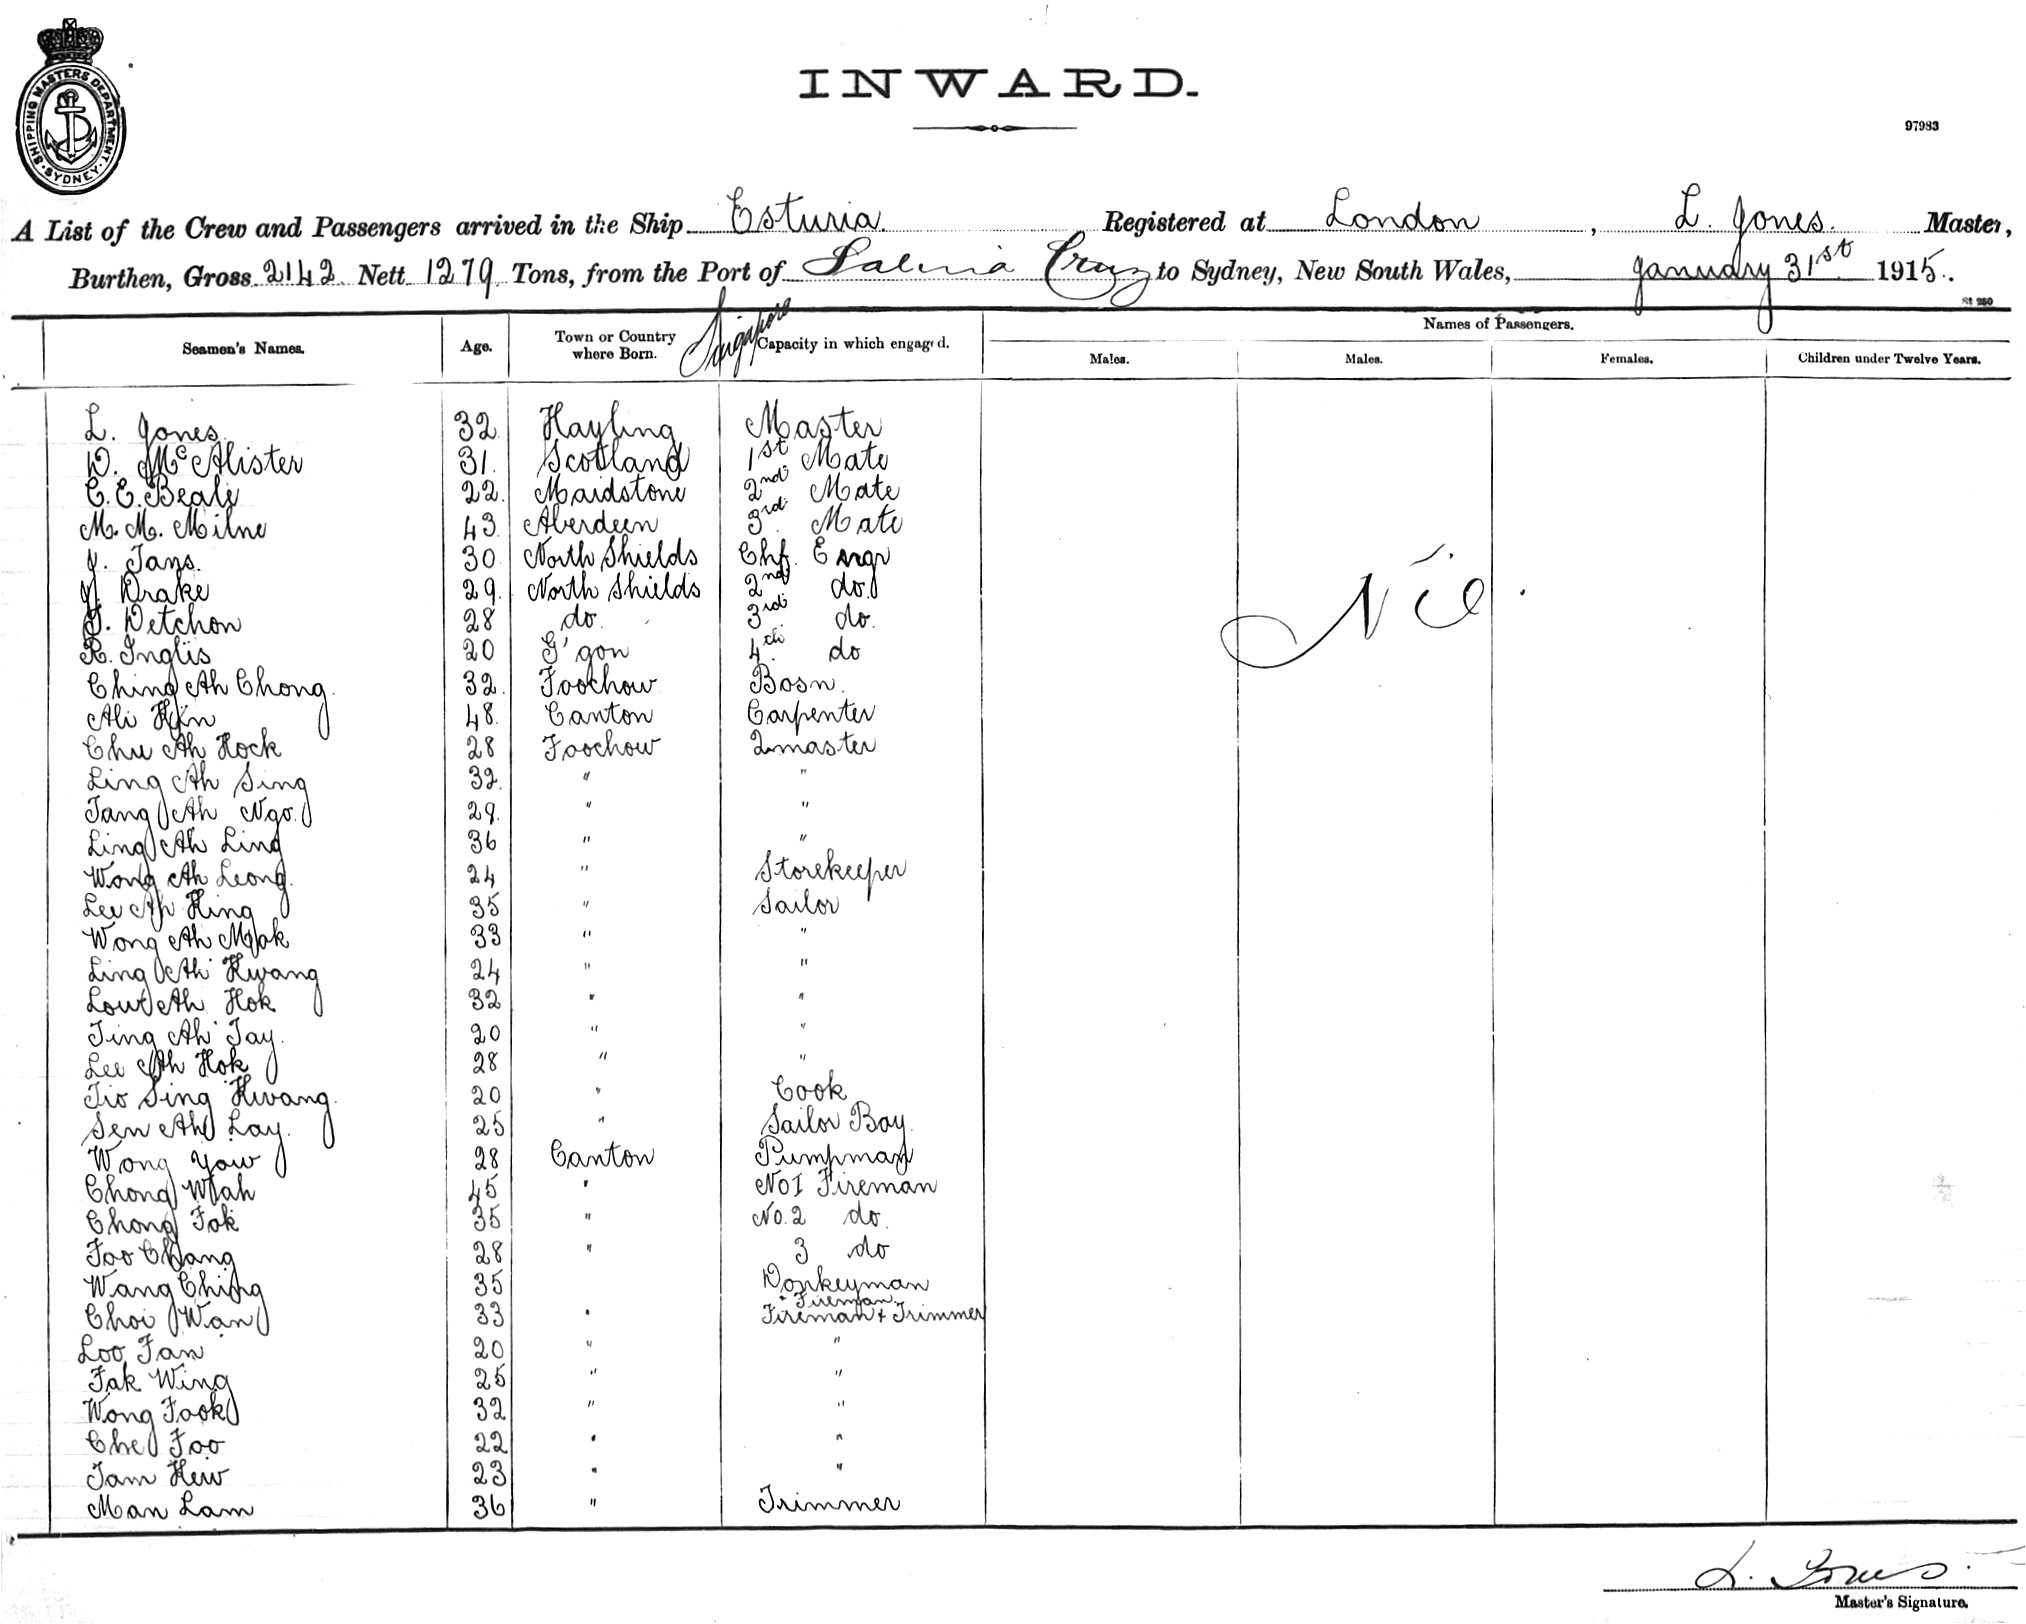 SHIPPING MASTERS DEPARTMENT. SYDNEY.
INWARD.
97983
A List of the Crew and Passengers arrived in the Ship Esturia Registered at London, L. Jones. Master,
Burthen, Gross 2142 Nett 1279 Tons, from the Port of Salina Cruz to Sydney, New South Wales, January 31st 1915.
St 250
Singapore
Names of Passengers.
Seamen's Names. Age. Town or Country where Born. Capacity in which engaged. Males. Males. Females. Children under Twelve Years.
L. Jones. 32. Hayling Master
D. McAlister 31. Scotland 1st Mate
C. E. Beale 22. Maidstone 2nd Mate
M. M. Milne 43 Aberdeen 3rd Mate
J. Tans. 30. North Shields Chf. Engr
J. Drake 29. North Shields 2nd do.
Detchon 28 do. 3rd do.
R. Inglis 20 G'gow 4th do
Nil.
Ching Ah Chong. 32. Foochow Bosn.
48. Canton Carpenter
Chu Ah Hock 28 Foochow 2master
Ling Ah Sing 32. " "
Tang Ah Ngo. 29. " "
Ling Ah Ling 36 " "
Wong Ah Leong. 24 " Storekeeper
Lee Ah Hing 35 " Sailor
Wong Ah Mok 33 " "
Ling Ah Kwang 24 " "
Ah Hok 32 " "
Ting Ah Tay. 20 " "
Lee Ah Hok 28 " "
Tio Sing Kwang. 20 " Cook
Sen Ah Lay. 25 " Sailor Boy
Wong Yow 28 Canton Pumpman
Chong Wah 45 " No 1 Fireman
Chong Fok 35 " No. 2 do.
Foo Chang 28 " 3 do
Wang Ching 35 Donkeyman
+ Fireman
Choi Wan 33 " Fireman + Trimmer
Loo Fam 20 " "
Fak Wing 25 " "
Wong Fook 32 " "
Che Foo 22 " "
Tam Hew 23 " "
Man Lam 36 " Trimmer
L. Jones.
Master's Signature.